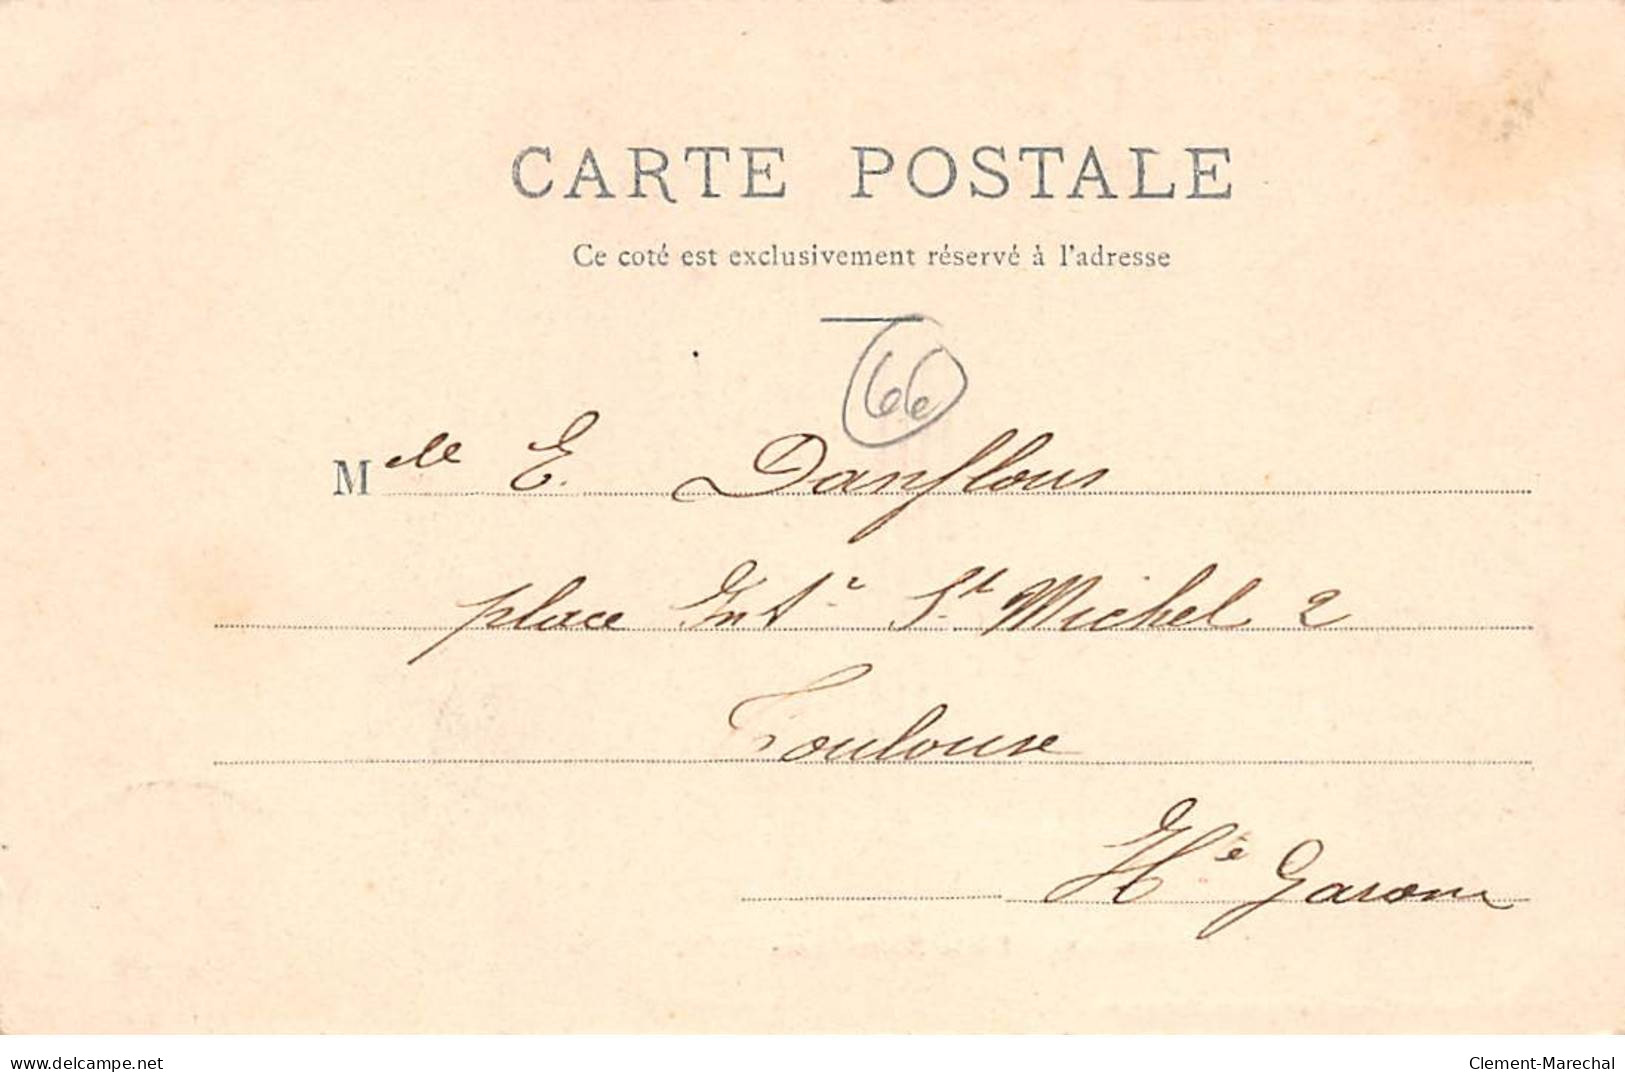 CARTE POSTALE
Ce coté est exclusivement réservé à l'adresse
66
Melle E. Danflous
place Intre St Michel 2
Toulouse
Hte Garonne
www.delcampe.net
Clement-Marechal